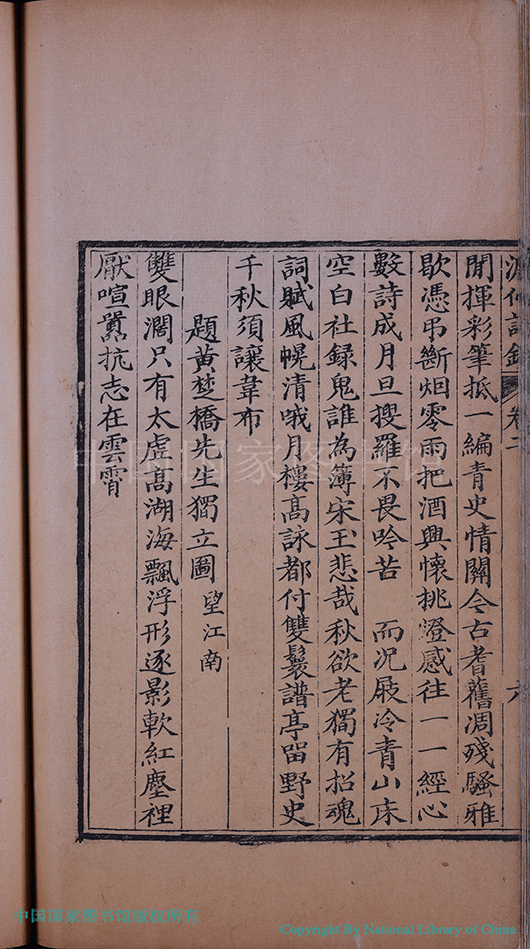 卷二
閒揮彩筆抵一編青史情關今古耆舊凋殘騷雅
歇憑弔斷烟零雨把酒興懷挑燈感往一一經心
數詩成月旦搜羅不畏吟苦　而况屐冷青山床
空白社録鬼誰為簿宋玉悲哉秋欲老獨有招魂
詞賦風幌清哦月樓高詠都付雙鬟譜亭留野史
千秋須讓韋布
題黄楚橋先生獨立圖 望江南
雙眼濶只有太虚高湖海飄浮形逐影軟紅塵裡
厭喧囂抗志在雲霄
中国国家图书馆
中国国家图书馆版权所有
Copyright By National Library of China